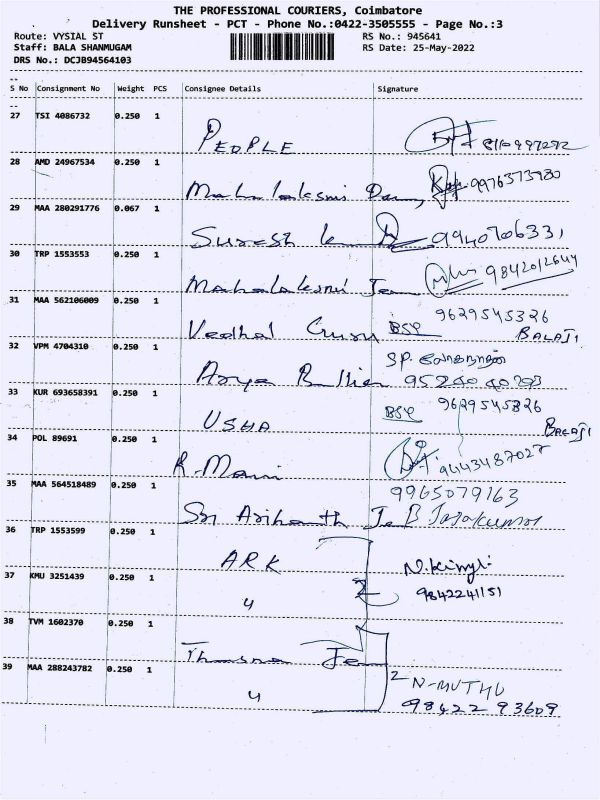 THE PROFESSIONAL COURIERS, Coimbatore
Delivery Runsheet - PCT - Phone No.:0422-3505555 - Page No.:3
Route: VYSIAL ST RS No.: 945641
Staff: BALA SHANMUGAM RS Date: 25-May-2022
DRS No.: DCJB94564103
S No Consignment No Weight PCS Consignee Details Signature
27 TSI 4086732 0.250 1
PEOPLE
28 AMD 24967534 0.250 1
Mahalaksmi 9976373980
29 MAA 280291776 0.067 1
Suresh k 9940706331
30 TRP 1553553 0.250 1
Mahalaksmi Je 9842012644
31 MAA 562106009 0.250 1 9629545326
Vedhal Gurn BSP BALAJI
32 VPM 4704310 0.250 1 SP.
Arya
33 KUR 693658391 0.250 1 9629545326
USHA BSP BALAJI
34 POL 89691 0.250 1
R-Mani 9443487027
35 MAA 564518489 0.250 1 9965079163
Sri Arihanth Je B Jayakumar
36 TRP 1553599 0.250 1
ARK
37 KMU 3251439 0.250 1 9842241151
4 2
38 TVM 1602370 0.250 1
Je
39 MAA 288243782 0.250 1 2 N-MUTHU
4 98422 93609